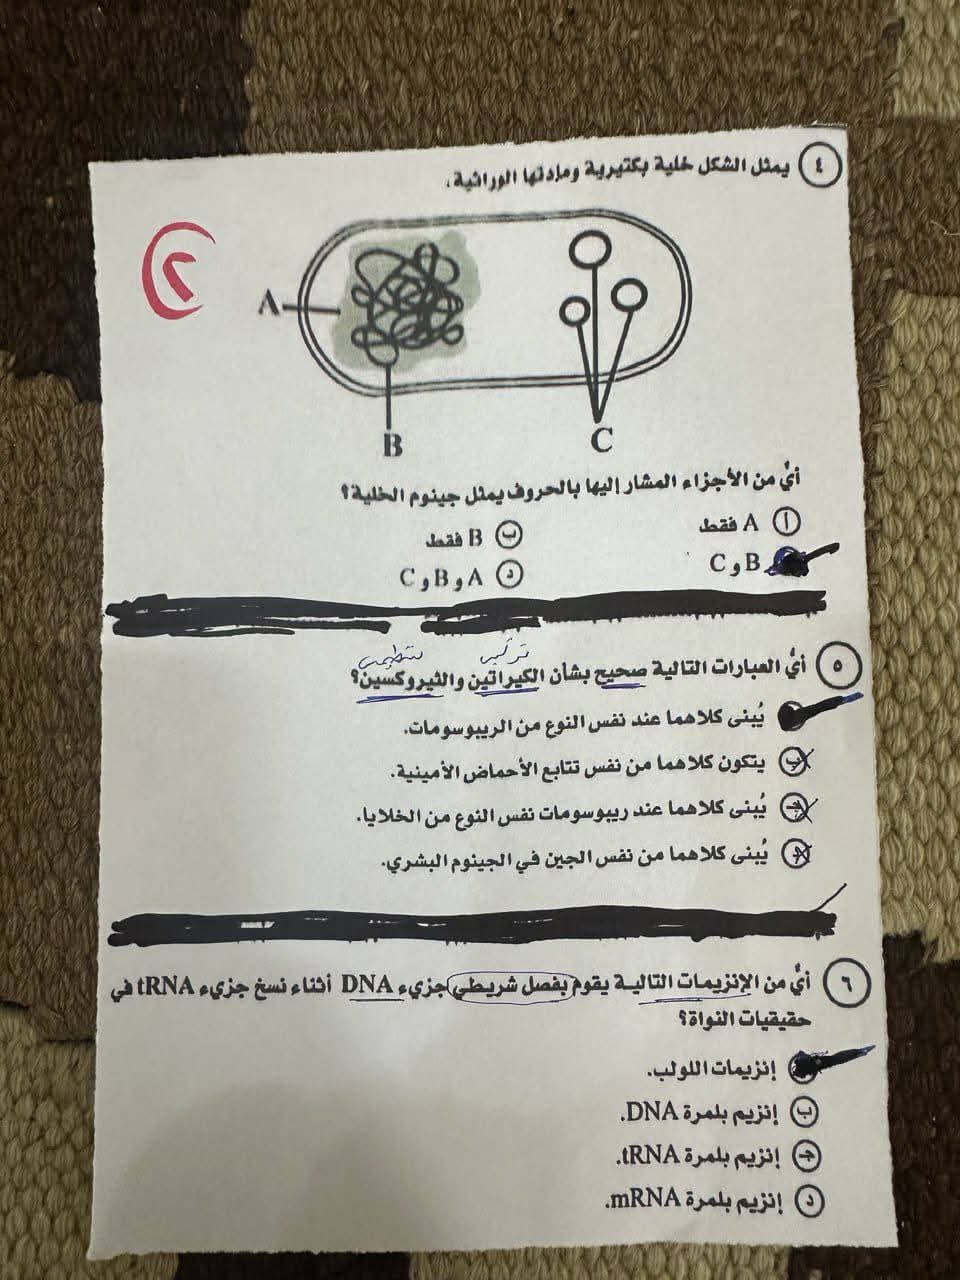 ٤ يمثل الشكل خلية بكتيرية ومادتها الوراثية.
٢
A
B
C
أيٌّ من الأجزاء المشار إليها بالحروف يمثل جينوم الخلية؟
أ A فقط
ب B فقط
B و C
د A و B و C
تركيبي تنظيمي
٥ أيُّ العبارات التالية صحيح بشأن الكيراتين والثيروكسين؟
يُبنى كلاهما عند نفس النوع من الريبوسومات.
ب يتكون كلاهما من نفس تتابع الأحماض الأمينية.
ج يُبنى كلاهما عند ريبوسومات نفس النوع من الخلايا.
د يُبنى كلاهما من نفس الجين في الجينوم البشري.
٦ أيُّ من الإنزيمات التالية يقوم بفصل شريطي جزيء DNA أثناء نسخ جزيء tRNA في
حقيقيات النواة؟
إنزيمات اللولب.
ب إنزيم بلمرة DNA.
ج إنزيم بلمرة tRNA.
د إنزيم بلمرة mRNA.